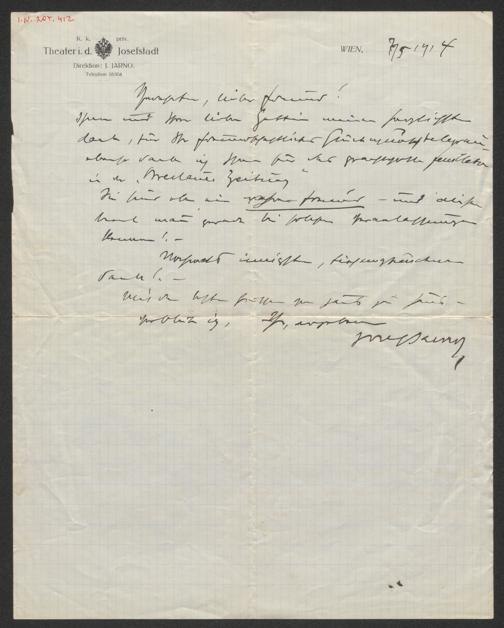 I.N. 205.412
K. k. priv.
Theater i. d. Josefstadt
Direktion: J. JARNO.
Telephon
WIEN, 7/5 1914
Verehrter, lieber Freund!
Ihnen und Ihrer lieben Gattin meinen herzlichsten
Dank, für Ihr freundschaftliches Glückwunschtelegramm,
ebenso danke ich Ihnen für das Feuilleton
in der „Breslauer Zeitung“
Sie sind eben ein wahrer Freund – und
kann man gerade bei solchen Veranlassungen
Nochmals innigsten,
Dank! –
Mit den besten Grüßen von Haus zu Haus –
verbleibe ich, Ihr ergebener
Josef Jarno